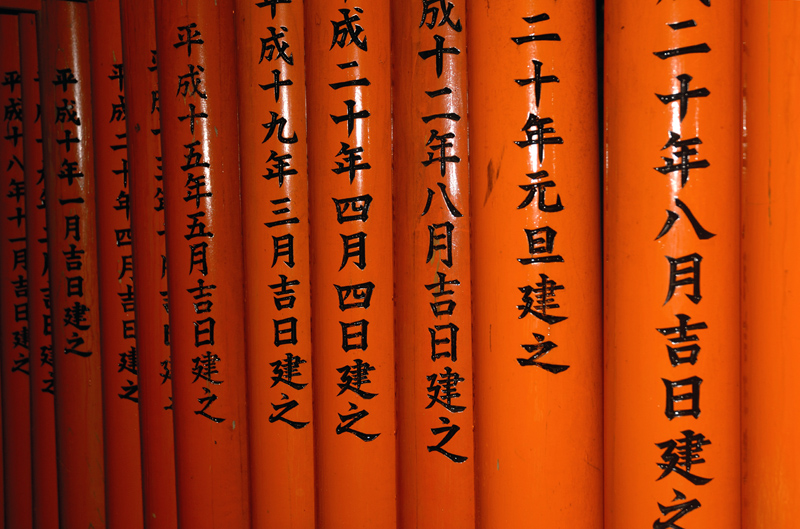 二十年八月吉日建之
二十年元旦建之
成十二年八月吉日建之
成二十年四月四日建之
平成十九年三月吉日建之
平成十五年五月吉日建之
平成二十年四月吉日建之
平成十年一月吉日建之
平成十八年十一月吉日建之